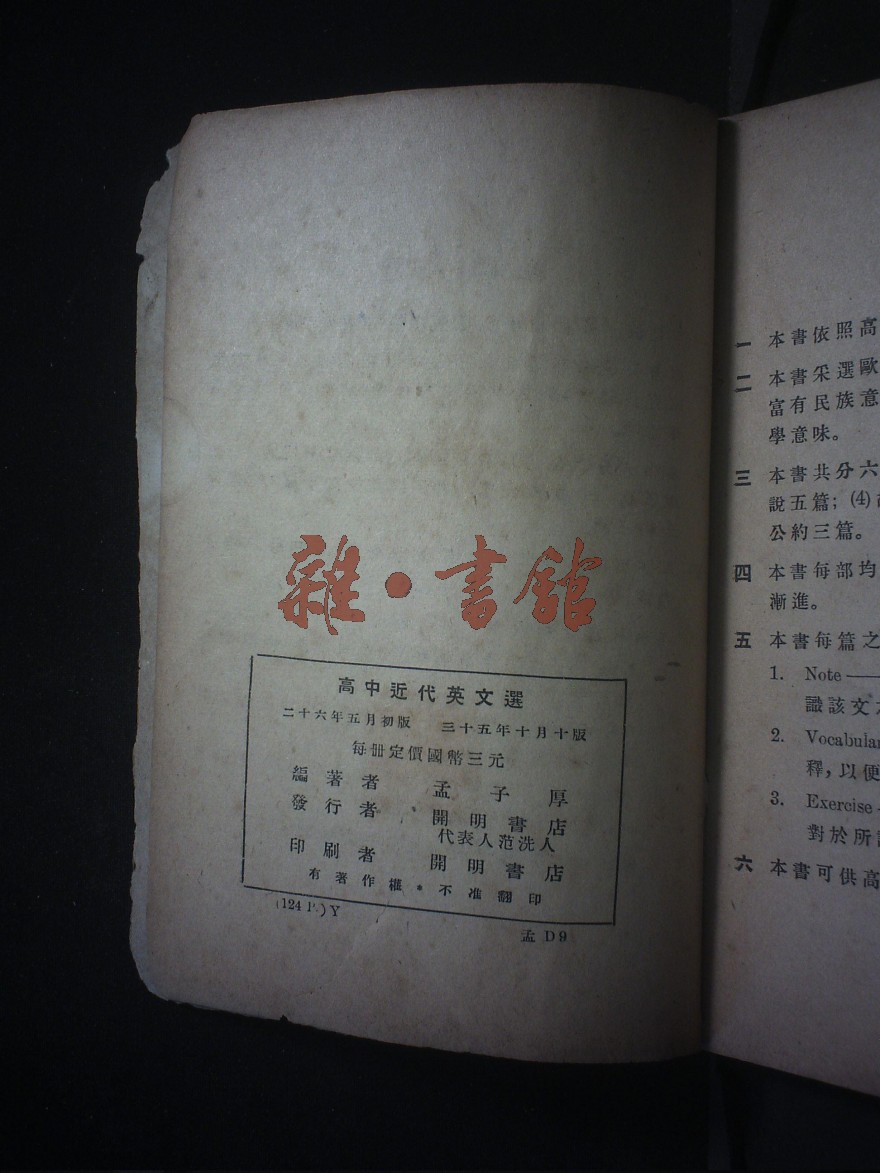 雜·書館
高中近代英文選
二十六年五月初版 三十五年十月十版
每冊定價國幣三元
編著者 孟子厚
發行者 開明書店
代表人范洗人
印刷者 開明書店
有著作權*不准翻印
(124 P.) Y
孟 D9
一 本書依照高
二 本書采選歐
富有民族意
學意味。
三 本書共分六
說五篇; (4)
公約三篇。
四 本書每部均
漸進。
五 本書每篇之
1. Note —
識該文
2. Vocabular
釋,以便
3. Exercise
對於所
六 本書可供高